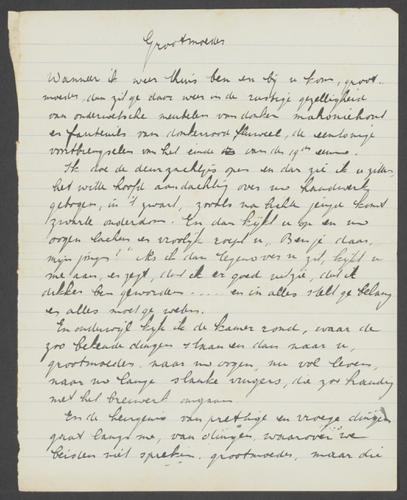 Grootmoeder
Wanneer ik weer thuis ben en bij u kom, groot-
moeder, dan zit ge daar weer in de rustige gezelligheid
van ouderwetsche meubelen van donker mahoniehout
en fauteuils van donkerrood fluweel, de eentonige
voortbrengselen van het einde van de 19de eeuw.
Ik doe de deur zachtjes open en dan zie ik u zitten,
het witte hoofd aandachtig over uw handwerk
gebogen, in 't zwart, zooals na zulke jonge komt
zwarte ouderdom. En dan kijkt u op en uw
oogen lachen en vroolijk roept u, "Ben je daar,
mijn jongen!" Als ik dan tegenover u zit, kijkt u
me aan, en zegt, dat ik er goed uitzie, dat ik
dikker ben geworden ..... en in alles stelt ge belang
en alles moet ge weten.
En onderwijl kijk ik de kamer rond, waar de
zoo bekende dingen staan en dan naar u,
grootmoeder, naar uw oogen, nu vol leven,
naar uw lange slanke vingers, die zoo handig
met het breiwerk omgaan.
En de heugenis van prettige en vroege dingen
gaat langs me, van dingen, waarover we
beiden niet spreken, grootmoeder, maar die